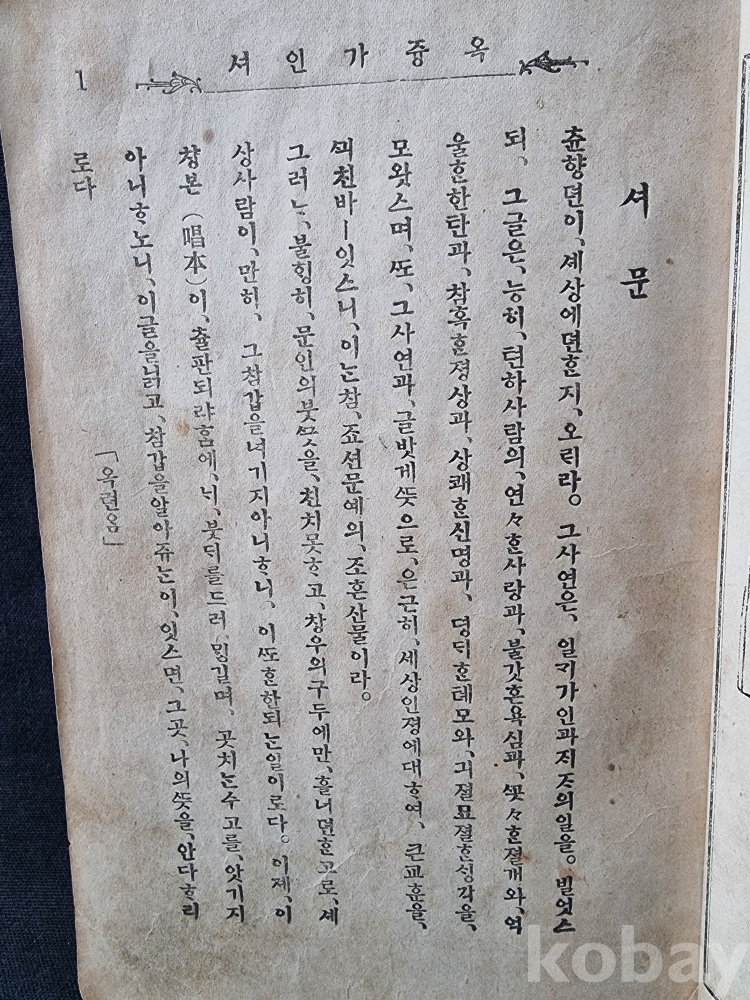 옥즁가인셔
1
셔문
츈향뎐이、셰상에뎐ᄒᆞᆫ지、오ᄅᆡ라。그사연은、일ᄃᆡ가인과ᄌᆡᄌᆞ의일을。빌엇스
되、그글은、능히、텬하사람의、연々ᄒᆞᆫ사랑과、불갓흔욕심과、ᄭᅩᆺ々ᄒᆞᆫ졀개와、억
울ᄒᆞᆫ한탄과、참혹ᄒᆞᆫ졍상과、상쾌ᄒᆞᆫ신명과、뎡ᄃᆡᄒᆞᆫ톄모와、긔졀묘졀ᄒᆞᆫᄉᆡᆼ각을、
모왓스며、ᄯᅩ、그사연과、글밧게ᄯᅳᆺ으로、은근히、셰상인졍에대ᄒᆞ여、큰교훈을、
ᄭᅵ친바ㅣ잇스니、이ᄂᆞᆫ참、죠션문예의、조흔산물이라。
그러ᄂᆞ、불ᄒᆡᆼ히、문인의붓ᄭᅳᆺ을、친치못ᄒᆞ고、창우의구두에만、흘너뎐ᄒᆞᆫ고로、셰
상사람이、만히、그참갑을녀기지아니ᄒᆞ니、이ᄯᅩᄒᆞᆫ한되ᄂᆞᆫ일이로다。이제、이
챵본(唱本)이、츌판되랴홈에、ᄂᆡ、붓ᄃᆡ를드러、ᄆᆡᆼ길며、곳치ᄂᆞᆫ수고를、앗기지
아니ᄒᆞ노니、이글을닑고、참갑을알아쥬ᄂᆞᆫ이、잇스면、그곳、나의ᄯᅳᆺ을、안다ᄒᆞ리
로다
kobay